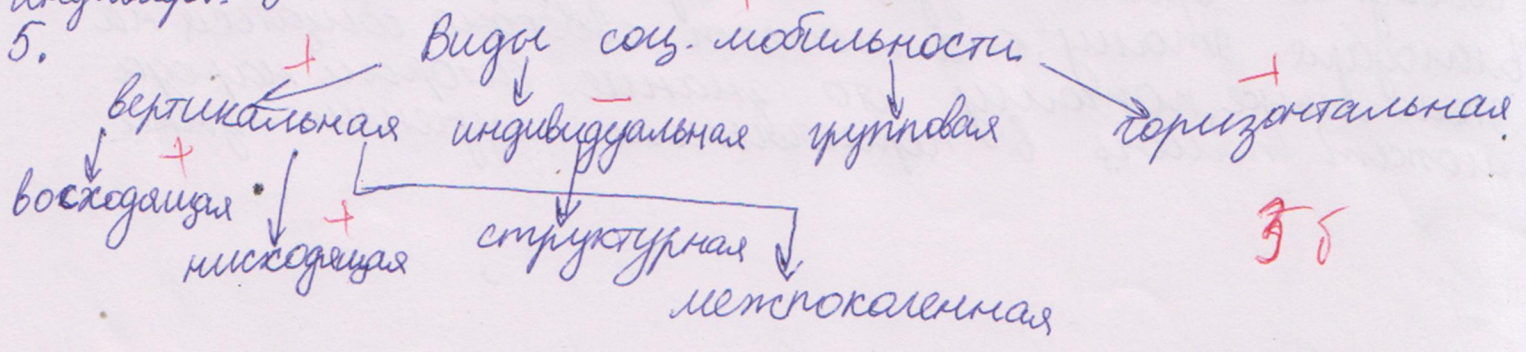 5. Виды соц. мобильности
вертикальная индивидуальная групповая горизонтальная
восходящая
нисходящая структурная
межпоколенная